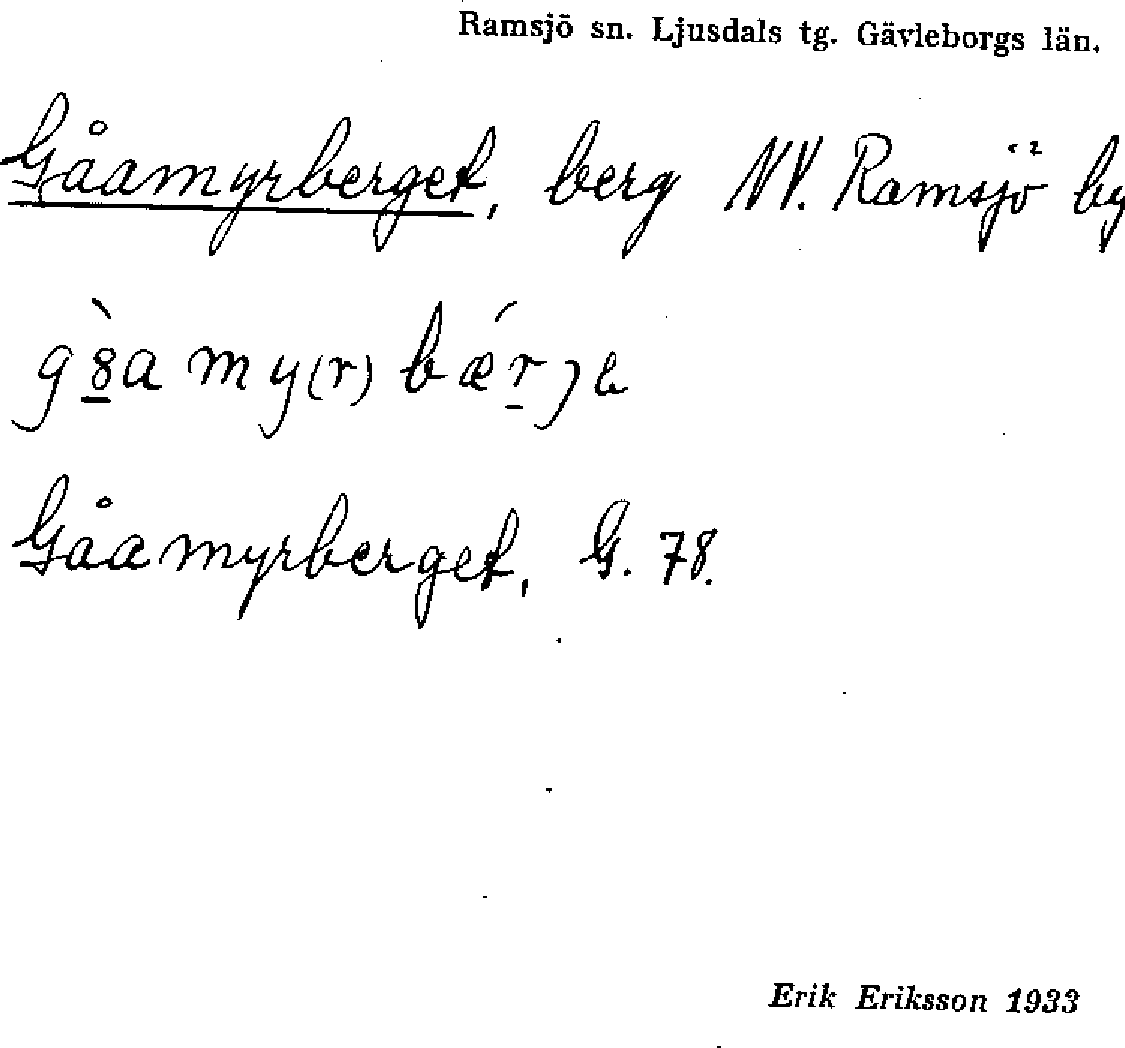 Ramsjö sn. Ljusdals tg. Gävleborgs län.
Gåamyrberget, berg NV. Ramsjö by
g8̠̀a my(r) bǽr̠je
Gåamyrberget, G. 78.
Erik Eriksson 1933